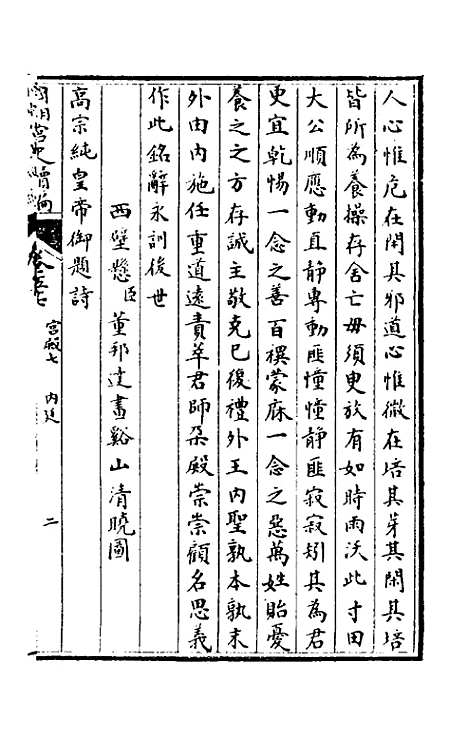 人心惟危在閑其邪道心惟微在培其芽其閑其培
皆所為養操存舍亡毋須臾放有如時雨沃此寸田
大公順應動直静專動匪憧憧静匪寂寂矧其為君
更宜乾惕一念之善百禩蒙庥一念之惡萬姓貽憂
養之之方存誠主敬克己復禮外王內聖孰本孰末
外由內施任重道遠責萃君師朵殿崇崇顧名思義
作此銘辭永訓後世
西壁懸臣董邦達畫谿山清曉圖
高宗純皇帝御題詩
國朝宮史續編
宮殿七 內廷
二